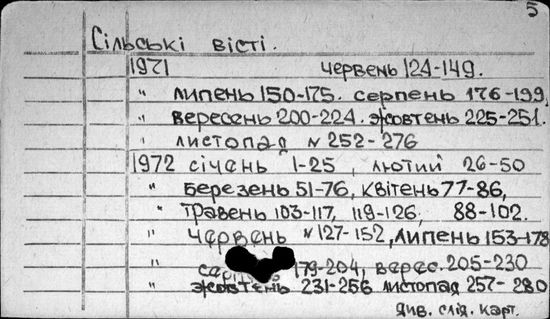 5
Сільські вісті.
1971 червень 124-149.
" липень 150-175. серпень 176-199,
" вересень 200-224. жовтень 225-251.
" листопад № 252-276
1972 січень 1-25, лютий 26-50
" березень 51-76, квітень 77-86,
" травень 103-117, 119-126, 88-102.
" червень № 127-152, липень 153-178
" 179-204, верес. 205-230
" жовтень 231-256 листопад 257-280
див. слід. карт.